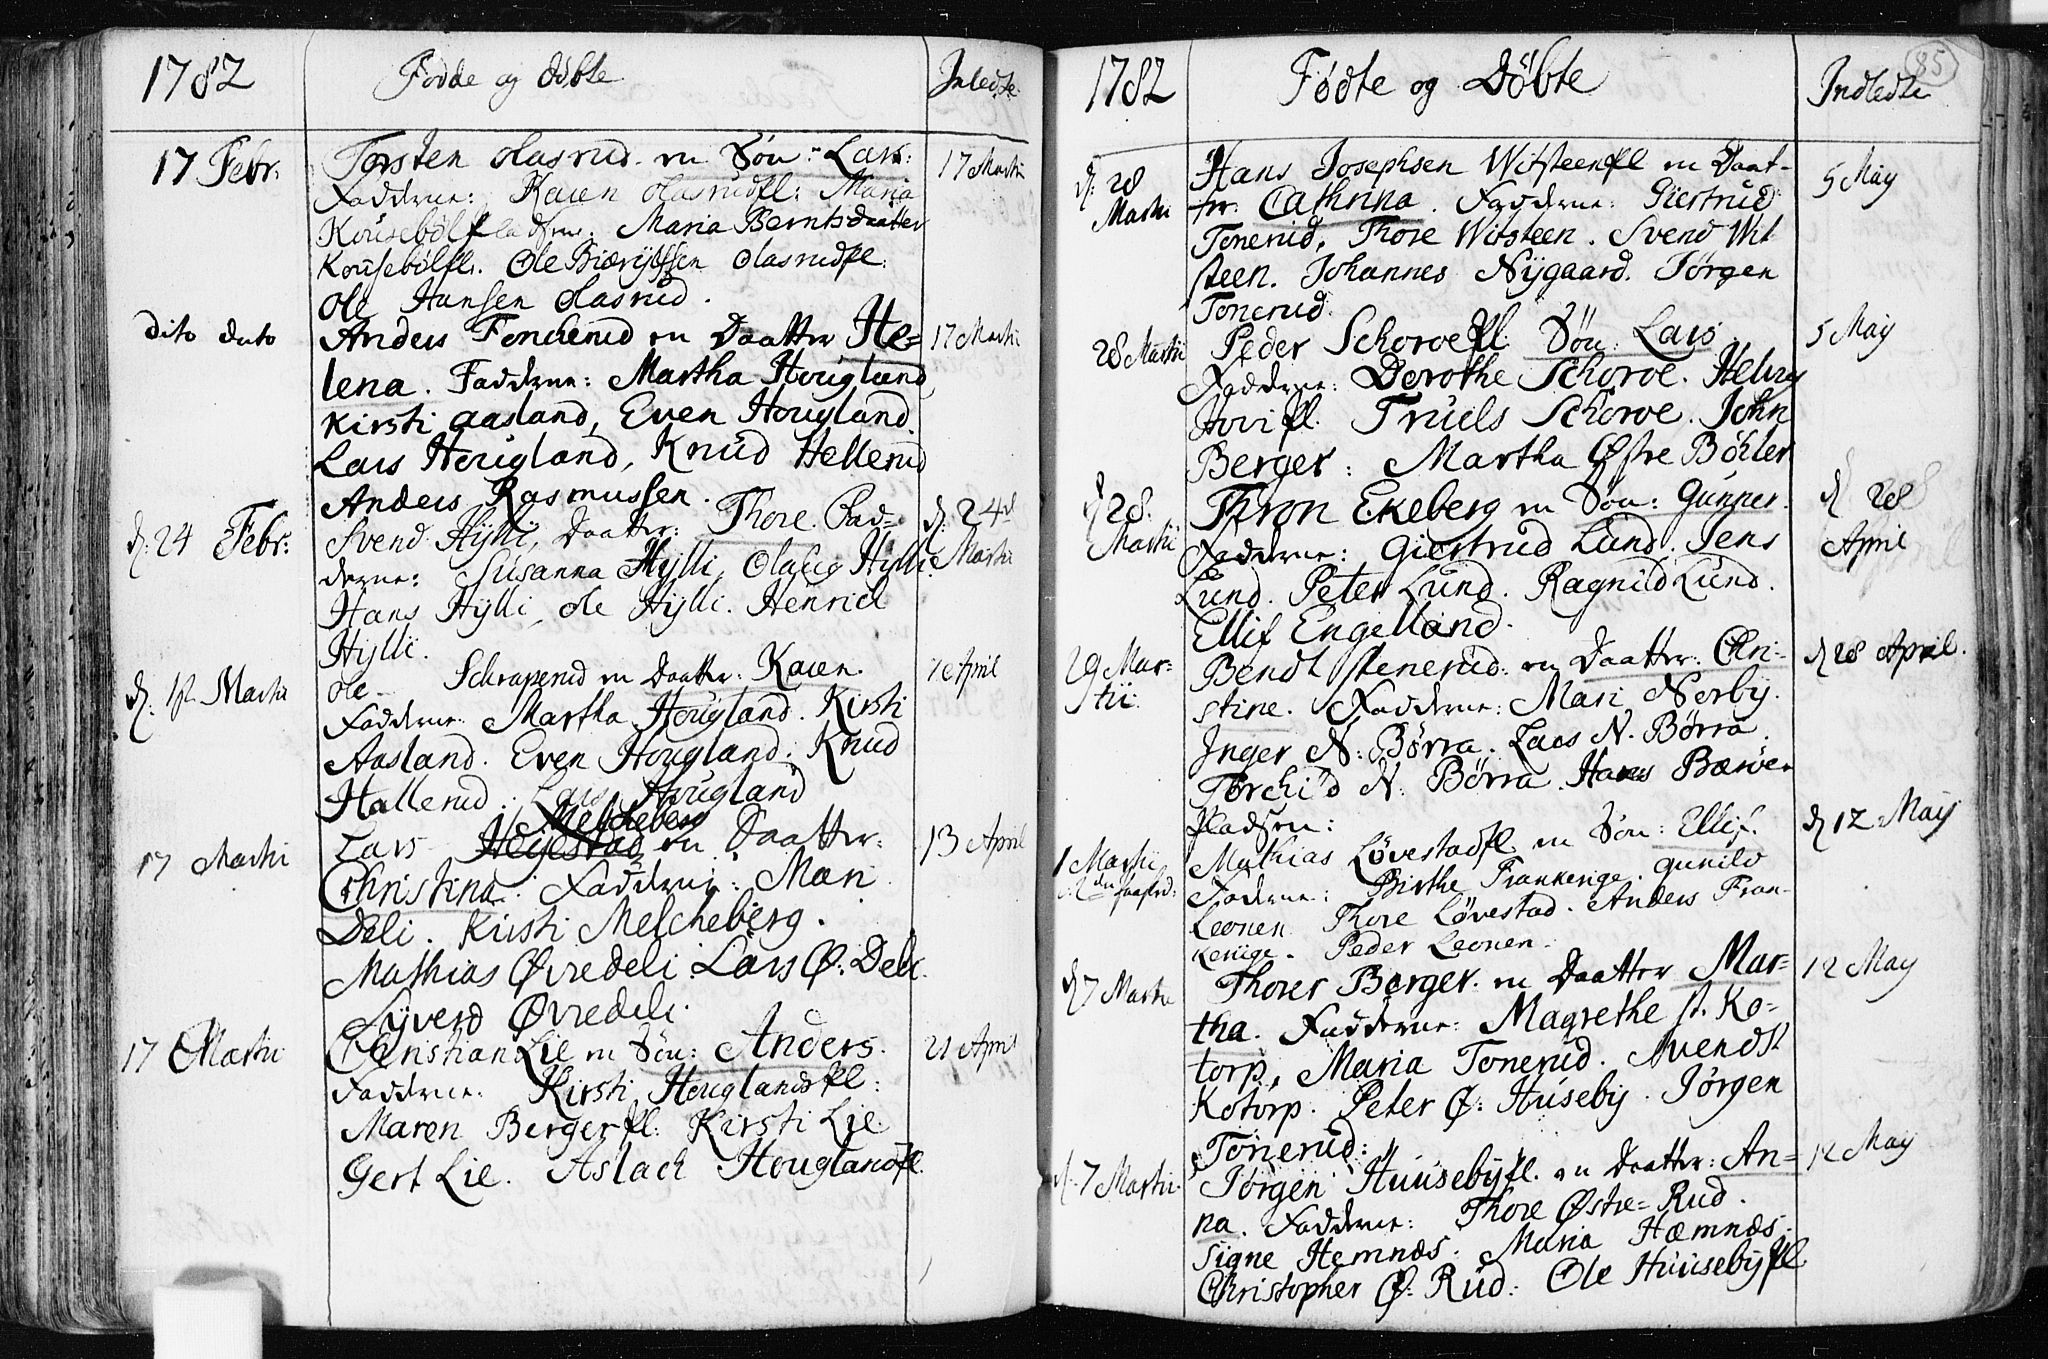 1782 Fødde og døbte Inledte
17 Febr: Torsten Olasrud en Søn: Lars: 17 Martii
Fadderne: Karen Olasrudfl: Maria
Kousebølfladsne: Maria Berntsdaatter
Kousebølfl. Ole Biærgssen Olasrudfl.
Ole Hansen Olasrud.
dito dato Anders Foncherud en Daatter He= 17 Martii
lena. Fadderne: Martha Hougland
Kirsti Aasland, Even Hougland.
Lars Hougland, Knud Hellerud
Anders Rasmussen.
d: 24 Febr: Svend Hylli, Daatter: Thore. Fad= d: 24de Martii
derne: Susanna Hylli, Olaug Hylli.
Hans Hylli, Ole Hylli. Henrich
Hylli.
d: 1st Martii Ole Schraperud en Daatter: Karen. 1 April
Fadderne: Martha Hougland. Kirsti
Aasland. Even Hougland. Knud
Hallerud. Lars Hougland
Melcheberg
17 Martii Lars Heyestad en Daatter: 13 April
Christina. Fadderne: Mari
Deli. Kirsti Melcheberg.
Mathias Øvredeli. Lars Ø: Deli.
Syverd Øvredeli.
17 Martii Christian Lie en Søn: Anders. 21 April
Fadderne: Kirsti Houglandsfl:
Maren Bergerfl: Kirsti Lie.
Gert Lie. Aslach Houglandfl.
85
1782 Fødte og Døbte Indledte
d: 28 Martii Hans Josephsen Witsteenfl en Daat- 5 May
ter. Cathrina. Fadderne: Giertrud
Tonerud, Thore Witsteen. Svend Wit
steen. Johannes Nygaard. Jørgen
Tonerud.
28 Martii Peder Schorvefl. Søn: Lars 5 May
Fadderne: Dorothe Schorve. Helvig
Hovifl. Truels Schorve. John
Berger: Martha Østre Böhler
d 28. Martii Thron Ekeberg en Søn: Gunner. d 28 April
Fadderne: Giertrud Lund. Jens
Lund. Peter Lund. Ragnild Lund.
Ellif Engelland.
29 Mar=
tii. Bendt Stenerud: en Daatter: Chri- d 28 April.
stine. Fadderne: Mari Nerby.
Inger N: Børra. Lars N. Børra.
Torchild N. Børra. Hans Bærver
Pladsen:
1 Martii Mathias Løvestadfl en Søn: Ellif. d 12 May
Fadderne: Birthe Frankerige. Gunild
Leonen. Thore Løvestad. Anders Fran-
kerige. Peder Leonen.
d 7 Martii Thorer Berger. en Daatter Mar= 12 May
tha. Fadderne: Magrethe st. Ko-
torp, Maria Tonerud. Svend St
Kotorp. Peter Ø: Huseby. Jørgen
Tonerud:
d. 7 Martii Jørgen Huusebyfl. en Daatter: An= 12 May
na. Fadderne: Thore Østre-Rud.
Signe Hemnæs. Maria Hæmnæs.
Christopher Ø: Rud: Ole Huusebyfl